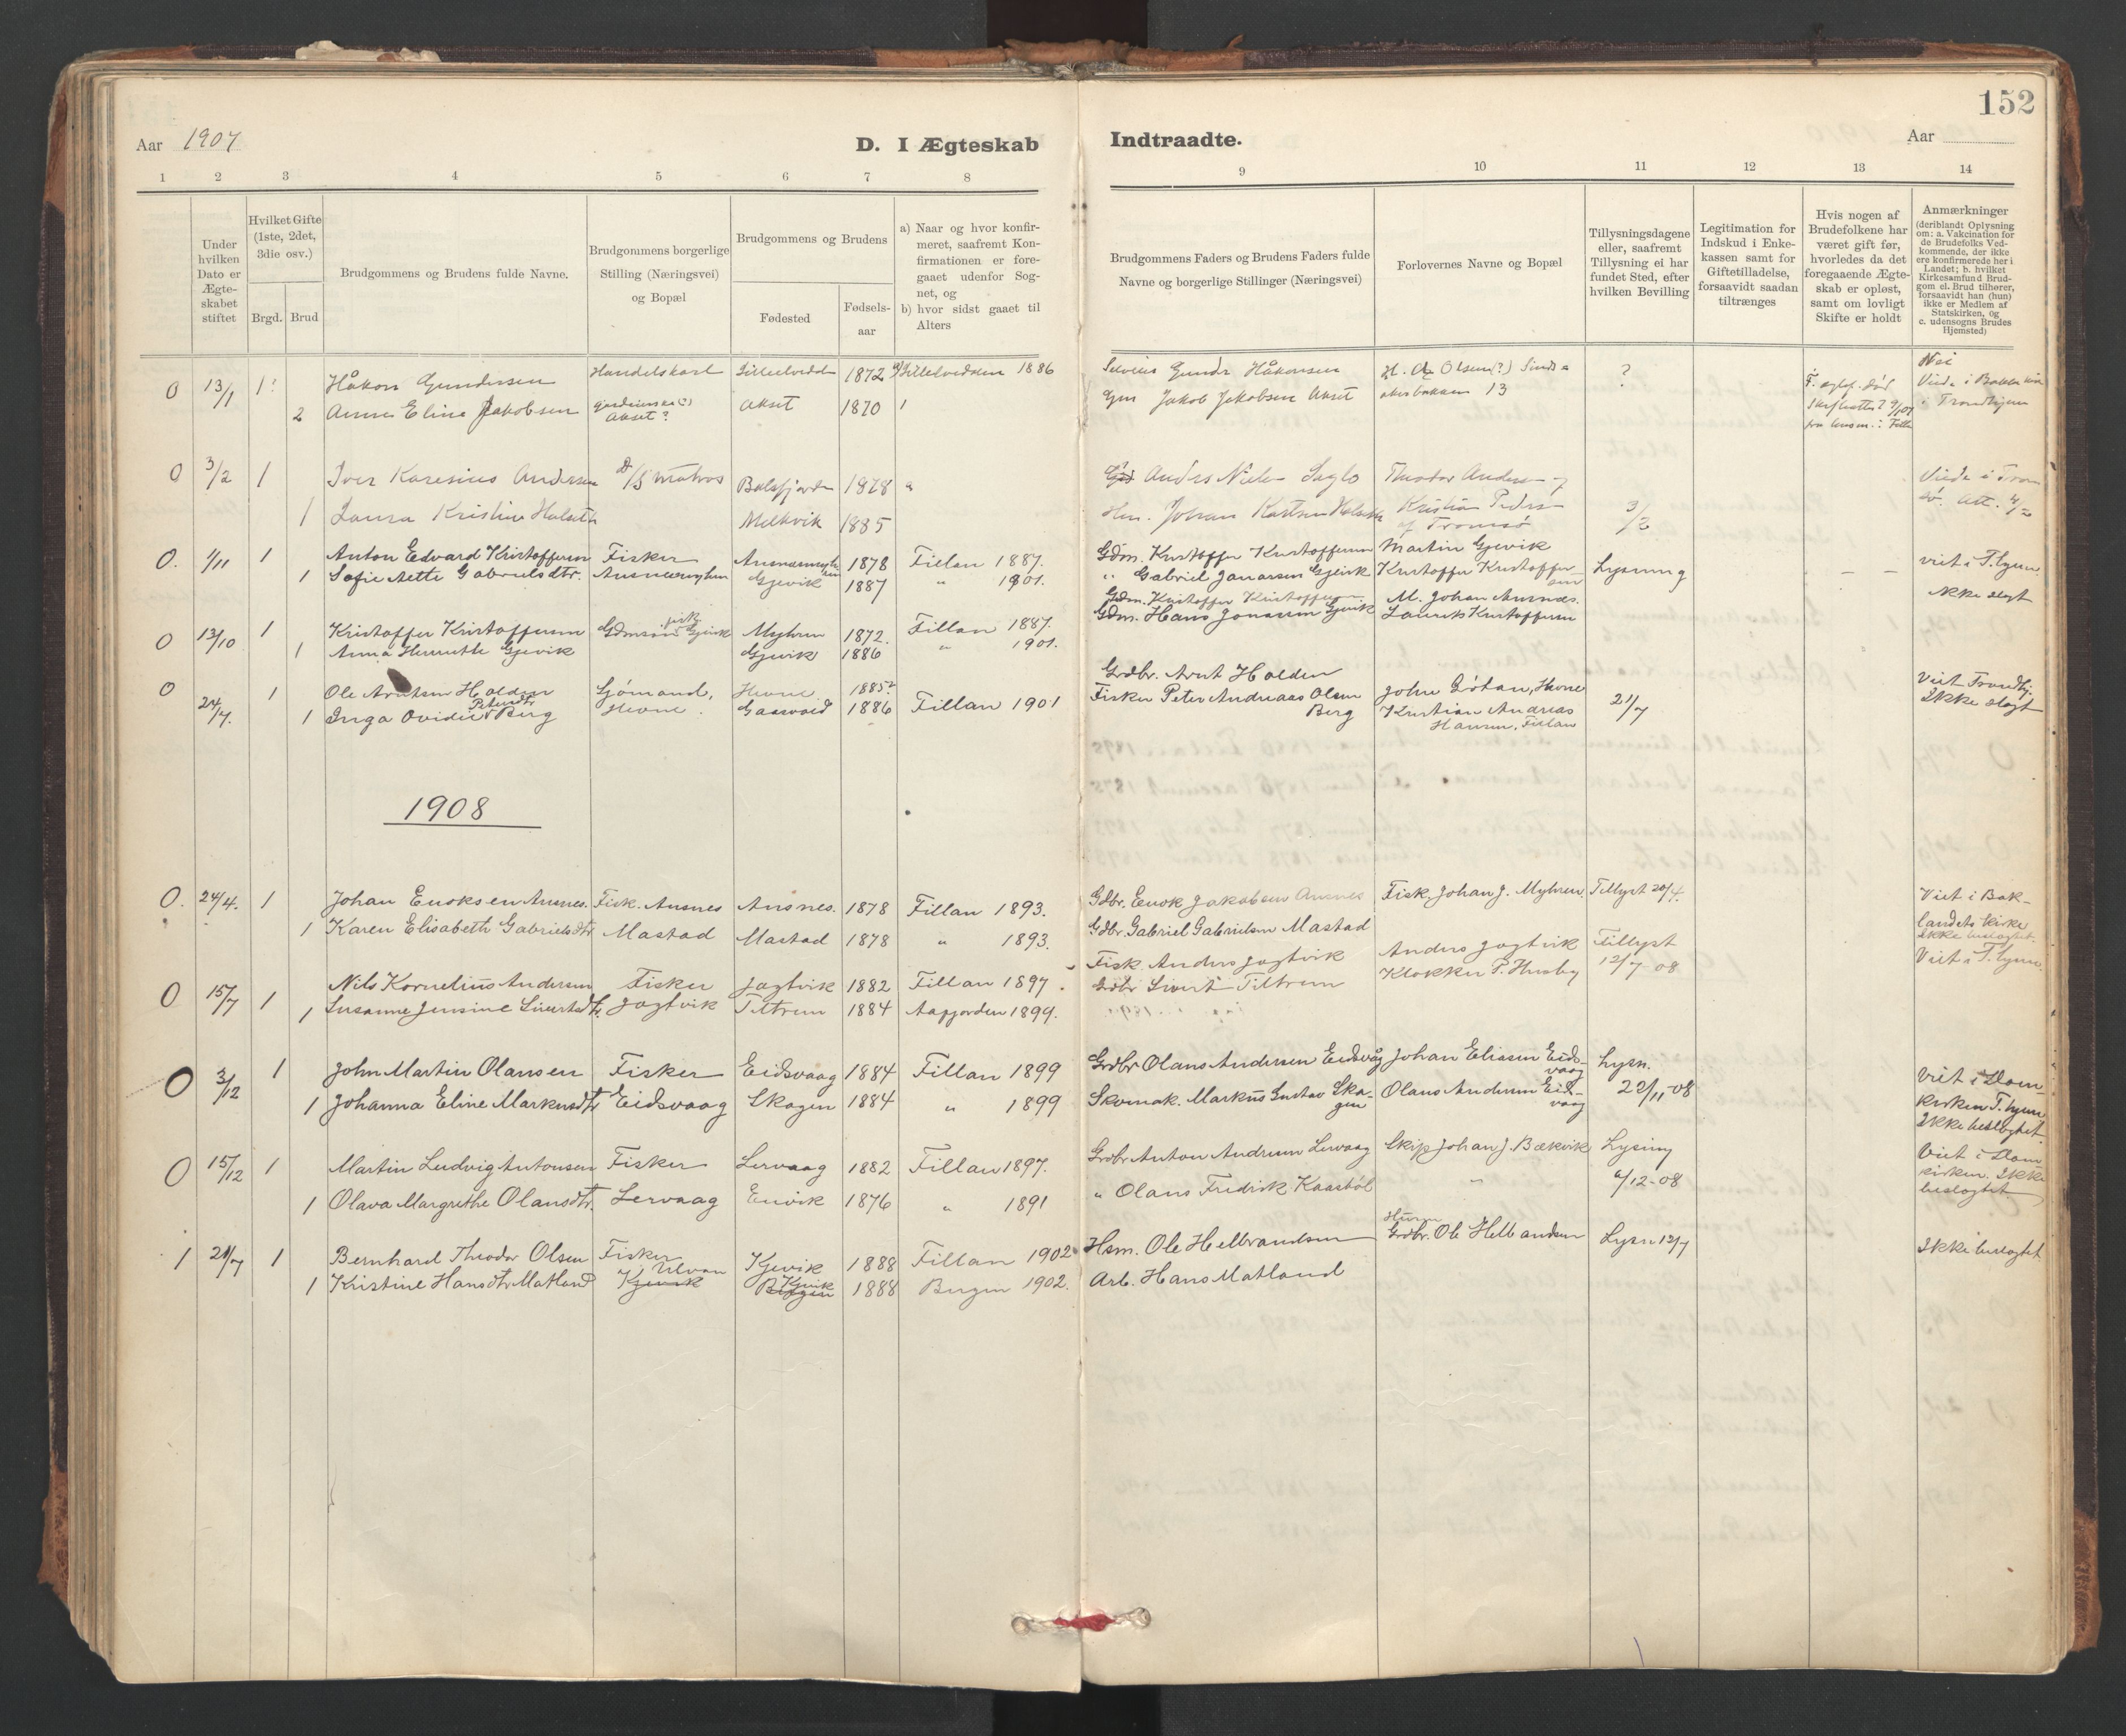 152
Aar 1907
D. I Ægteskab
Indtraadte.
Aar
1 2 3 4 5 6 7 8
9 10 11 12 13 14
Under hvilken Dato er Ægteskabet stiftet
Hvilket Gifte (1ste, 2det, 3die osv.)
Brgd. Brud
Brudgommens og Brudens fulde Navne.
Brudgommens borgerlige Stilling (Næringsvei) og Bopæl
Brudgommens og Brudens
Fødested
Fødsels-aar
a) Naar og hvor konfir-
meret, saafremt Kon-
firmationen er fore-
gaaet udenfor Sog-
net, og
b) hvor sidst gaaet til
Alters
Brudgommens Faders og Brudens Faders fulde
Navne og borgerlige Stillinger (Næringsvei)
Forlovernes Navne og Bopæl
Tillysningsdagene
eller, saafremt
Tillysning ei har
fundet Sted, efter
hvilken Bevilling
Legitimation for
Indskud i Enke-
kassen samt for
Giftetilladelse,
forsaavidt saadan
tiltrænges
Hvis nogen af
Brudefolkene har
været gift før,
hvorledes da det
foregaaende Ægte-
skab er opløst,
samt om lovligt
Skifte er holdt
Anmærkninger
(deriblandt Oplysning
om: a. Vakcination for
de Brudefolks Ved-
kommende, der ikke
ere konfirmerede her i
Landet; b. hvilket
Kirkesamfund Brud-
gom el. Brud tilhører,
forsaavidt han (hun)
ikke er Medlem af
Statskirken, og
c. udensogns Brudes
Hjemsted)
0 13/1 1? Håkon Gundersen Handelskarl 1872 1886 Gundr Håkonsen ? Nei
2 Anna Eline Jakobsen Akset? Akset 1870 Jakob Jakobsen Akset 13 i Trondhjem
0 3/2 1 Iver Karesius Andersen matros Balsfjorden 1878 Anders Viede i Trom
1 Laura Kristine Holseth Melkvik 1885 Hm. Johan Kristian Peders af Tromsø 3/2
0. 1/11 1 Anton Edvard Kristoffersen Fisker 1878 Fillan 1887. Gdm. Kristoffer Kristoffersen Martin Gjevik viet i T.hjem.
1 Sofie Aette Gabrielsdtr. Gjevik 1887 " 1901. " Gabriel Jonassen Gjevik Kristoffer Kristoffersen Lysning - - ikke slegt
Gdm. Kristoffer Kristoffersen M. Johan Ausnes.
0 13/10 1 Kristoffer Kristoffersen Gdmsøn Gjevik Myhren 1872. Fillan 1887. Gdm. Hans Jonassen Gjevik Laurits Kristoffersen
1 Anna Gjevik Gjevik 1886 " 1901.
0 24/7. 1 Ole Arntsen Holden Sjømand, Hevne 1885? Grdbr. Arnt Holden John Hevne Viet Trondhj.
1 Inga Ovidie Petersdtr Berg Hevne. 1886 Fillan 1901 Fisker Peter Andreas Olsen Berg Kristian Andreas Hansen, Fillan 21/7 Ikke slegt
1908
0. 24/4. 1 Johan Enoksen Ausnes. Fisk. Ausnes Ausnes. 1878 Fillan 1893. Gdbr. Enok Jakobsen Ausnes Fisk. Johan J. Myhren. Tillyst 20/4. Viet i Bak-
1 Karen Elisabeth Gabrielsdtr Mastad Mastad 1878 " 1893. Gdbr. Gabriel Gabrielsen Mastad landets kirke Ikke beslegtet.
0 15/7 1 Nils Kornelius Andersen Fisker Jagtvik 1882 Fillan 1897. Fisk. Anders Jagtvik Anders Jagtvik Tillyst Viet i T.hjem.
1 Susanne Jensine Sivertsdtr. Jagtvik Titrum 1884 Aafjorden 1899. Grdbr Sivert Titrum Klokker P. Husby 12/7-08
0 3/12 1 John Martin Olansen Fisker Eidsvaag 1884 Fillan 1899 Grdbr. Olans Andersen Eidsvåg Johan Eliasen Eids-vaag Lysn. Viet i Dom-
1 Johanna Eline Markusdtr Eidsvaag Skagen 1884 " 1899 Skomak. Markus Gustav Ska-gen Olans Andersen Eids-vaag 22/11-08 kirken T.hjem Ikke beslegtet.
0 15/12 1 Martin Ludvig Antonsen Fisker Lervaag 1882 Fillan 1897. Grdbr Anton Andersen Lervaag Skip Johan J. Bækvik Lysning Viet i Dom-
1 Olava Margrethe Olansdtr. Lervaag 1876 " 1891 " Olans Fredrik " 6/12-08 kirken. Ikke beslegtet.
1 21/7 1 Bernhard Theodor Olsen Fisker Ulvan Kjevik 1888 Fillan 1902 Hsm. Ole Helbrandsen Grdbr. Ole Helbrandsen Lysn 12/7 Ikke beslegtet
1 Kristine Hansdtr Matland Kjevik Kjevik Bergen 1888 Bergen 1902. Arb. Hans Matland